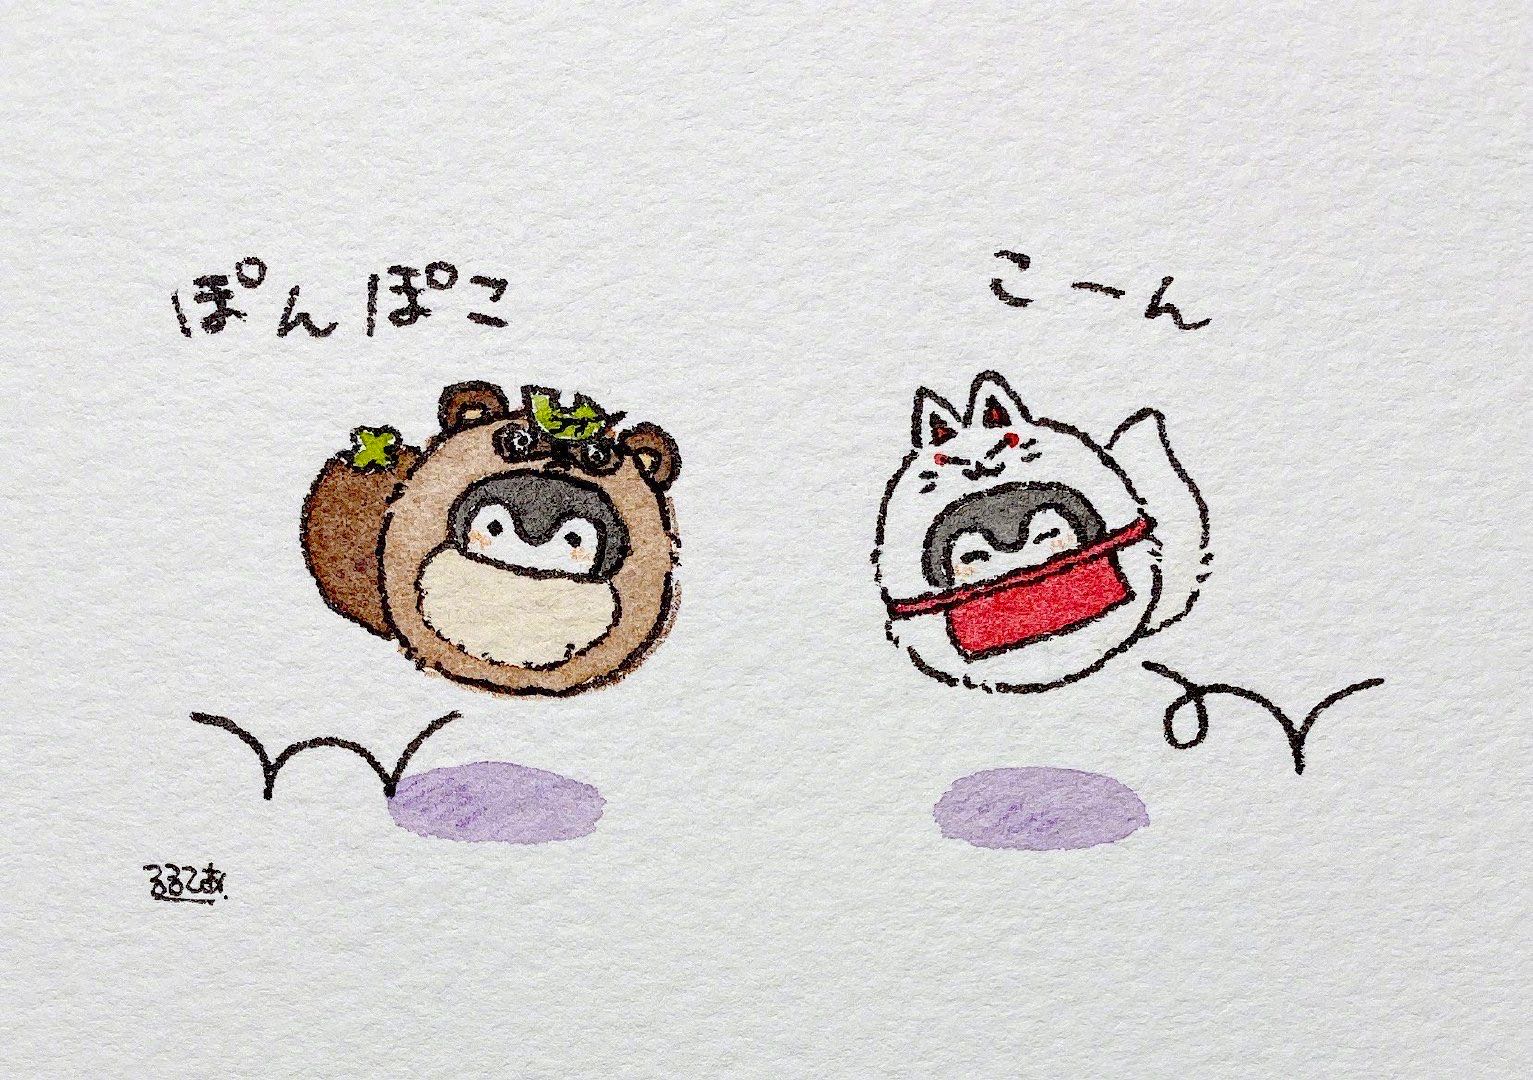 ぽんぽこ
こーん
るるてあ